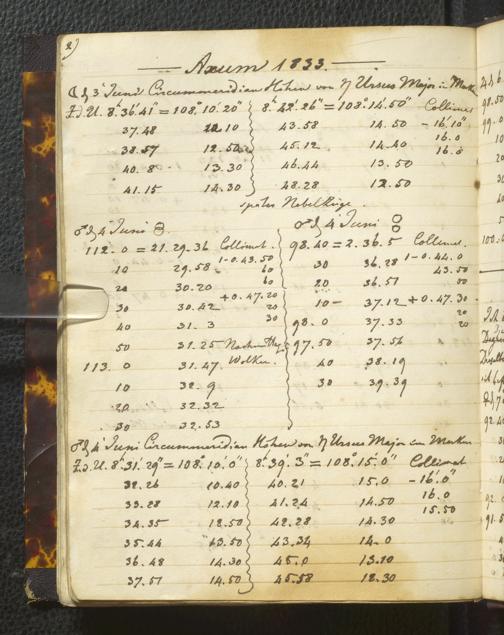 2)
Axum 1833.
☾ d 3 Juni Circummeridian Höhen von η Ursus Major im Merkur
Z.d.U. 8.h 36.' 41" = 108.° 10.' 20" 8.h 42.' 26" = 108.° 14.' 50" Collimat
37.48 12.10 43.58 14.50 - 16.' 10"
38.57 12.50 45.12 14.40 16.0
40.8 - 13.30 46.44 13.50 16.0
41.15 14.30 48.28 12.50
später Nebelhige.
♂ d 4 Juni
112. 0 = 21.29.36 Collimat.
10 29.58 1-0.43.50
20 30.20 60
30 30.42 +0.47.20
40 31.3 30
50 31.25
113. 0 31.47 Wolken.
10 32.9
20 32.32
30 32.53
♂ d 4 Juni
98.40 = 2.36.5 Collimat.
30 36.28 1-0.44.0
20 36.51 43.50
10 - 37.12 +0.47.30
98.0 37.33 20
97.50 37.56 20
40 38.19
30 39.39
♂ d 4 Juni Circummeridian Höhen von η Ursus Major im Merkur
Z.d.U. 8.h 31.' 29" = 108.° 10.' 0" 8.h 39.' 3" = 108.° 15.' 0" Collimat
32.26 10.40 40.21 15.0 - 16.' 0"
33.28 12.10 41.24 14.50 16.0
34.35 12.50 42.28 14.30 15.50
35.44 13.50 43.34 14.0
36.48 14.30 45.0 13.10
37.51 14.50 45.58 12.30